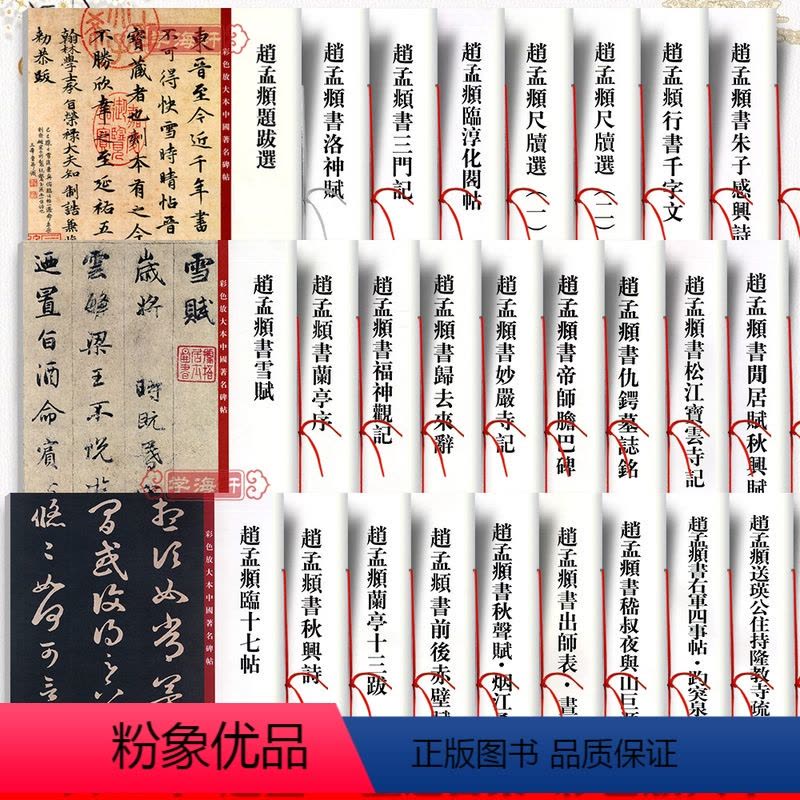 東晉至今近千年書
不可得快雪時晴帖晉
寶藏者也刻本有之今
不勝欣幸之至延祐五
翰林學士承旨榮祿大夫知制誥兼
勑恭跋
學海軒
彩色放大本中國著名碑帖
趙孟頫題跋選
趙孟頫書洛神賦
趙孟頫書三門記
趙孟頫臨淳化閣帖
趙孟頫尺牘選（一）
趙孟頫尺牘選（二）
趙孟頫行書千字文
趙孟頫書朱子感興詩
雪賦
歲將時既暮
雲繁梁王不悅遊
迺置旨酒命賓
彩色放大本中國著名碑帖
趙孟頫書雪賦
趙孟頫書蘭亭序
趙孟頫書福神觀記
趙孟頫書歸去來辭
趙孟頫書妙嚴寺記
趙孟頫書帝師膽巴碑
趙孟頫書仇鍔墓誌銘
趙孟頫書松江寶雲寺記
趙孟頫書閒居賦秋興賦
學海軒
彩色放大本中國著名碑帖
趙孟頫臨十七帖
趙孟頫書秋興詩
趙孟頫蘭亭十三跋
趙孟頫書前後赤壁賦
趙孟頫書秋聲賦·烟江
趙孟頫書出師表·晝
趙孟頫書嵇叔夜與山巨
趙孟頫書右軍四事帖·趵突泉
趙孟頫送瑛公住持隆教寺疏
粉象优品
正版图书 品质保证